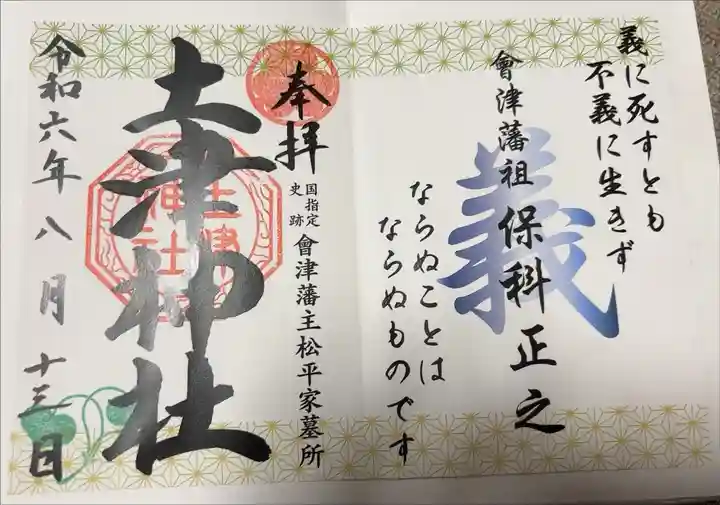 義に死すとも
不義に生きず
義
會津藩祖 保科正之
ならぬことは
ならぬものです
奉拝
国指定
史跡
會津藩主松平家墓所
土津神社
令和六年八月十三日